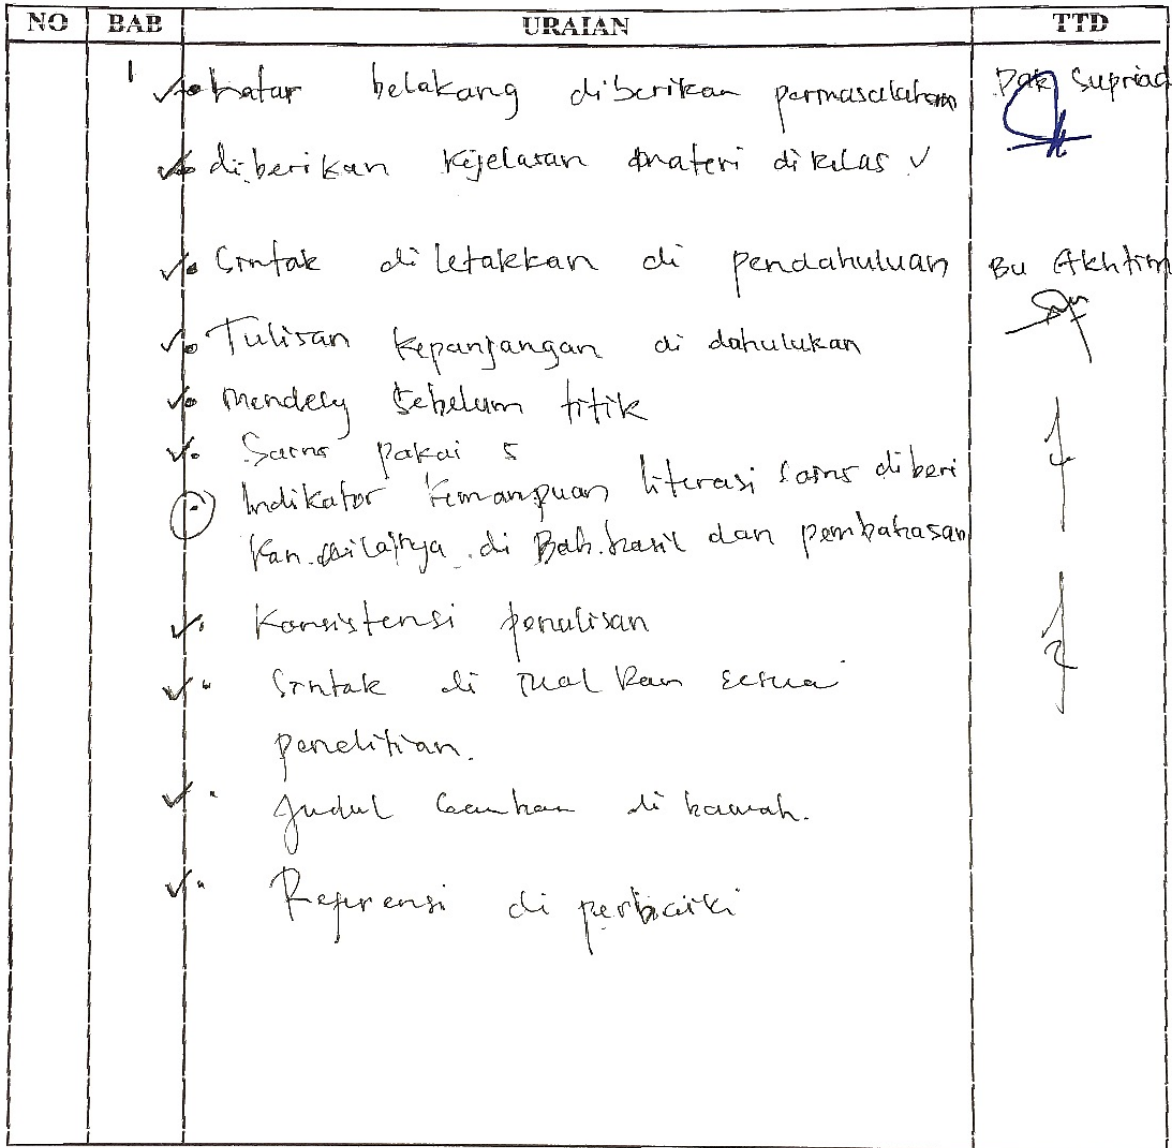 NO BAB URAIAN TTD
1 Latar belakang diberikan permasalahan Pak Supriad
diberikan kejelasan materi dikelas V
Sintak di letakkan di pendahuluan Bu Akhtim
Tulisan kepanjangan di dahulukan
mendely sebelum titik
Sains pakai s
Indikator kemampuan literasi sains diberi
kan nilainya di Bab hasil dan pembahasan
Konsistensi penulisan
Sintak di sesuai
penelitian.
Judul di bawah.
Referensi di perbaiki